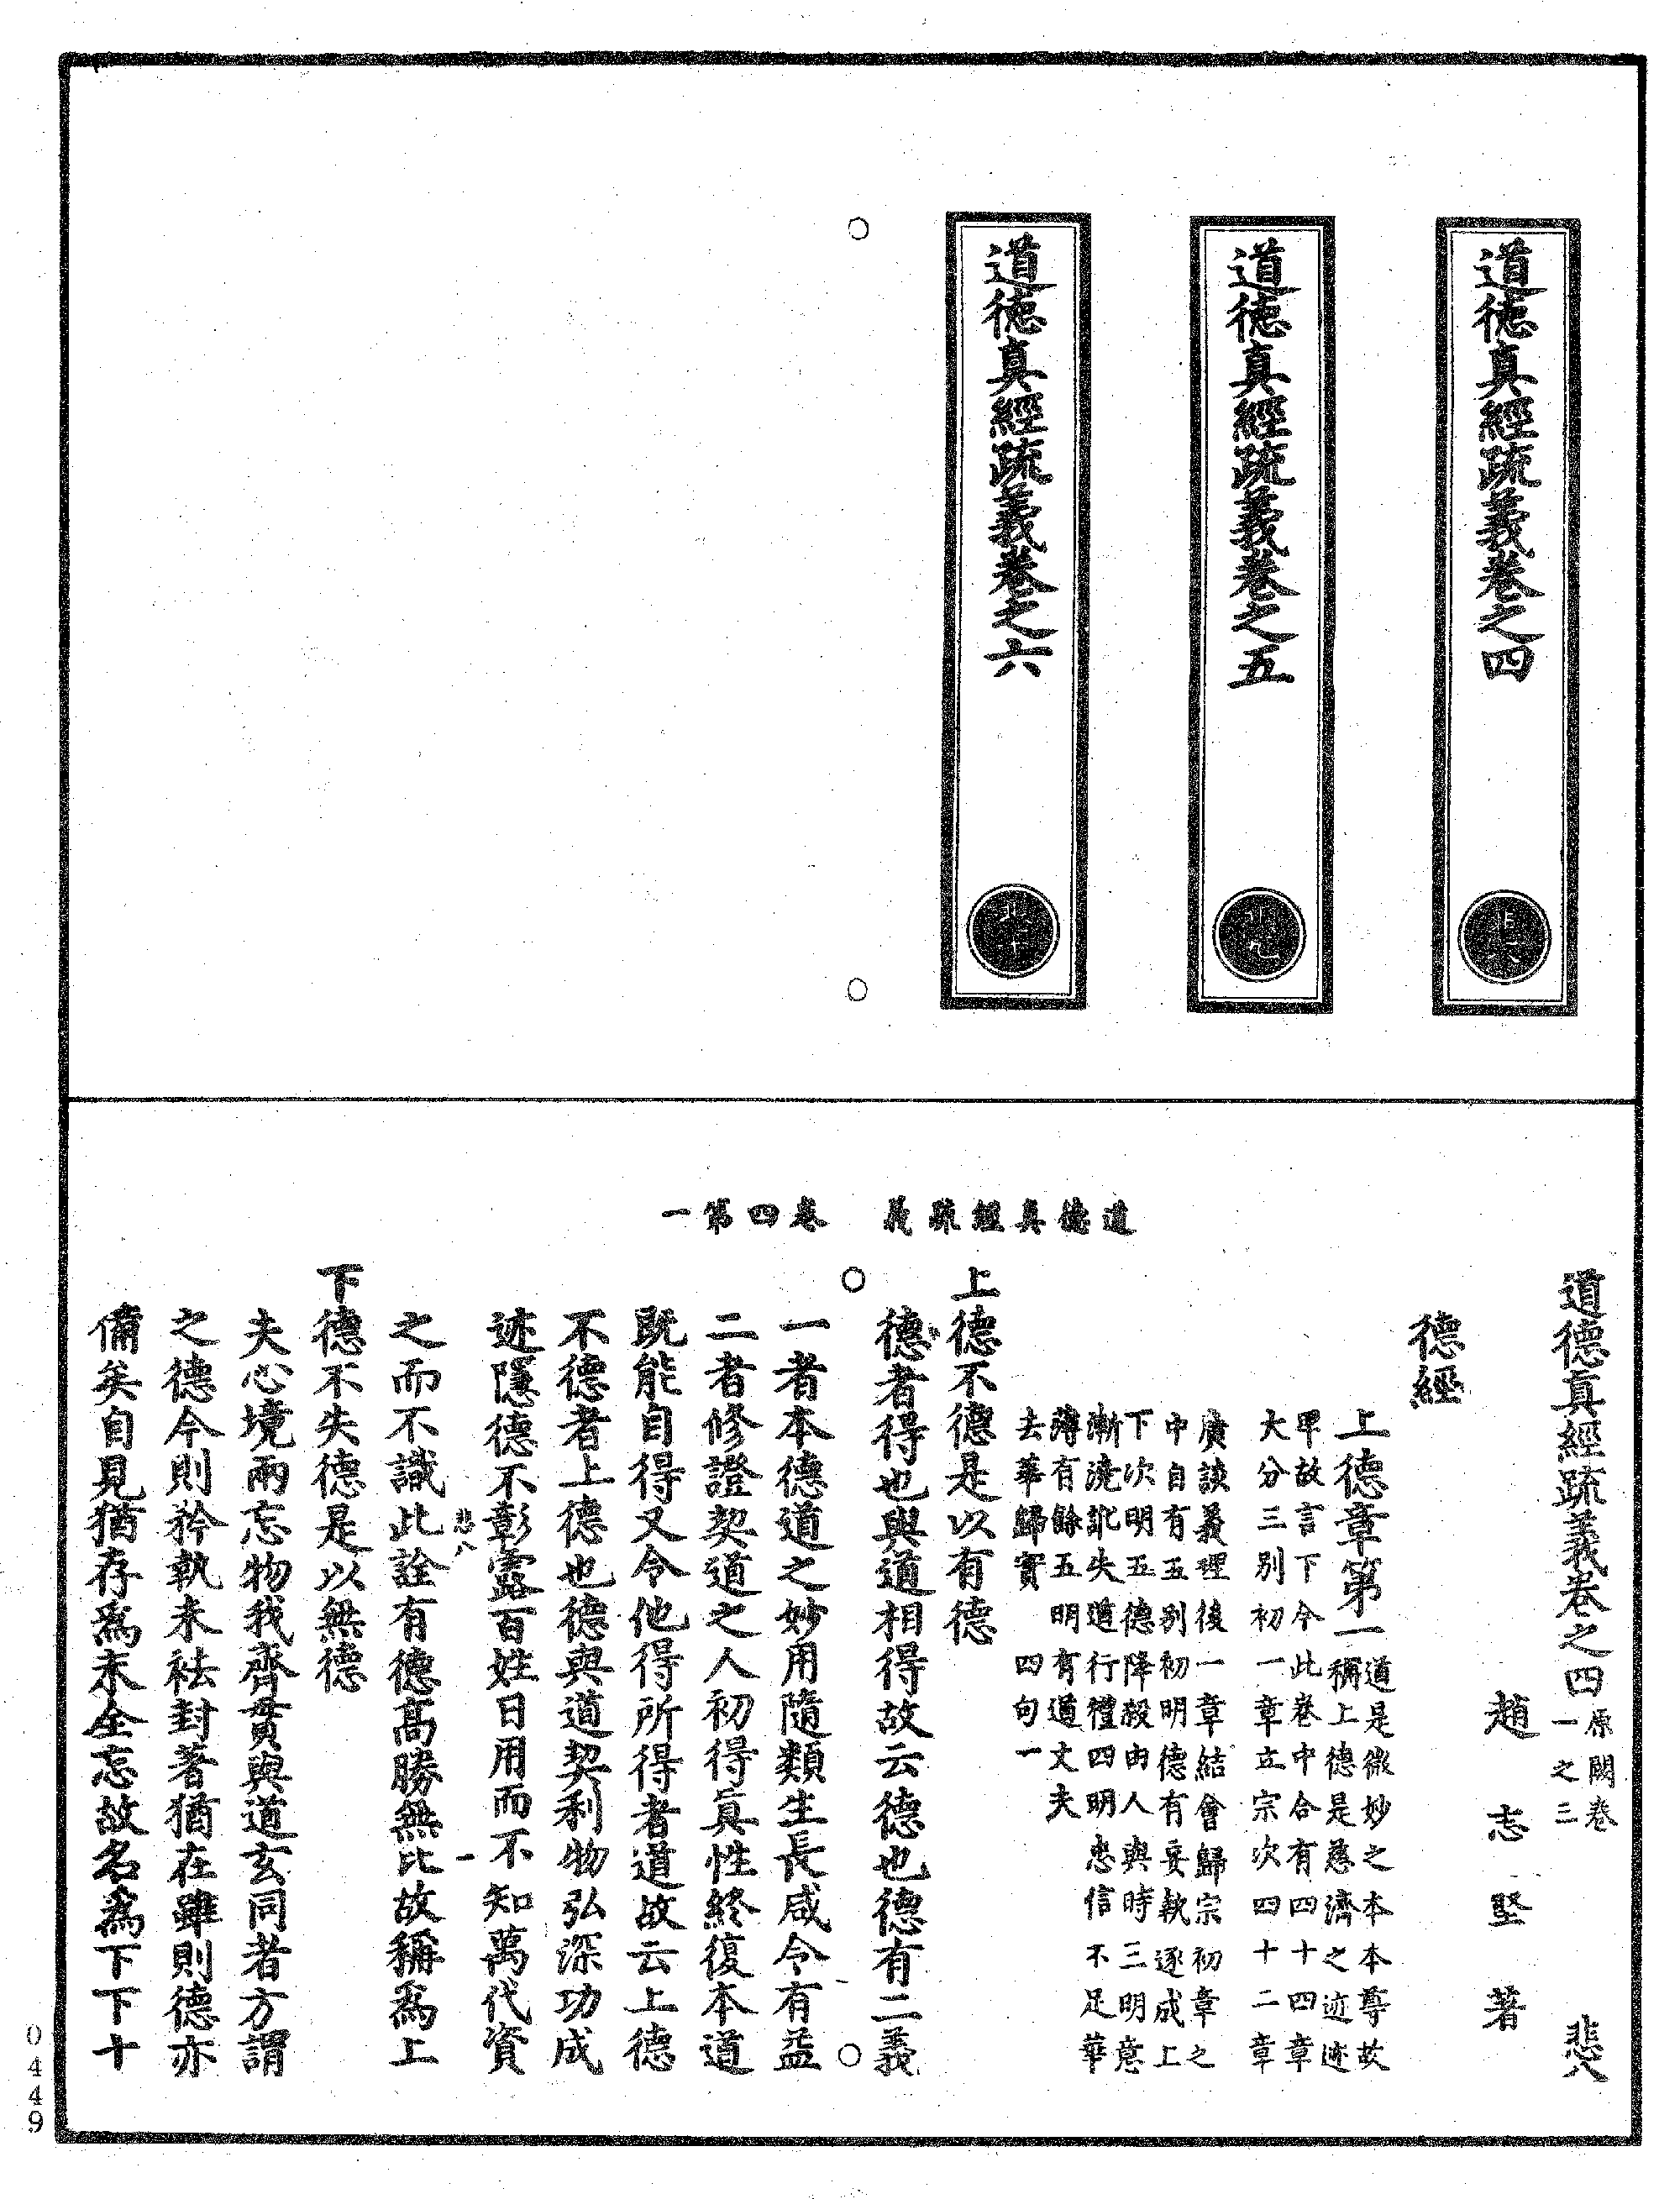 道德真經疏義卷之四
道德真經疏義卷之五
道德真經疏義卷之六
道德真經疏義　卷四第一
道德真經疏義卷之四 原闕卷一之三 悲八
趙志堅著
德經
上德章第一 道是微妙之本本尊故
稱上德是慈濟之迹迹
卑故言下今此卷中合有四十四章
大分三別初一章立宗次四十二章
廣談義理後一章結會歸宗初章之
中自有五別初明德有妥執逐成上
下次明五德降殺由人與時三明意
漸澆訛失道行禮四明忠信不足華
薄有餘五明有道丈夫
去華歸實四句一
上德不德是以有德
德者得也與道相得故云德也德有二義
一者本德道之妙用隨類生長咸令有益
二者修證契道之人初得真性終復本道
既能自得又令他得所得者道故云上德
不德者上德也德與道契利物弘深功成
迹隱德不彰露百姓日用而不知萬代資
悲八 一
之而不識此詮有德高勝無比故稱爲上
下德不失德是以無德
夫心境兩忘物我齊貫與道玄同者方謂
之德今則矜執未袪封著猶在雖則德亦
備矣自見猶存爲未全忘故名爲下下十
0449